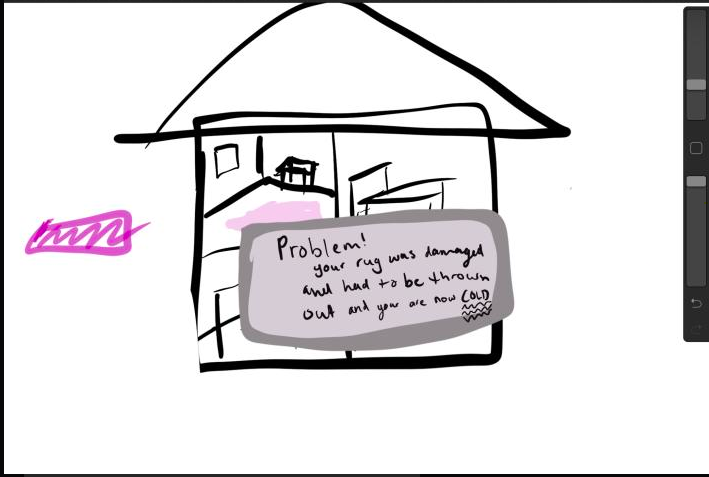 Problem!
your rug was damaged
and had to be thrown
out and your are now COLD